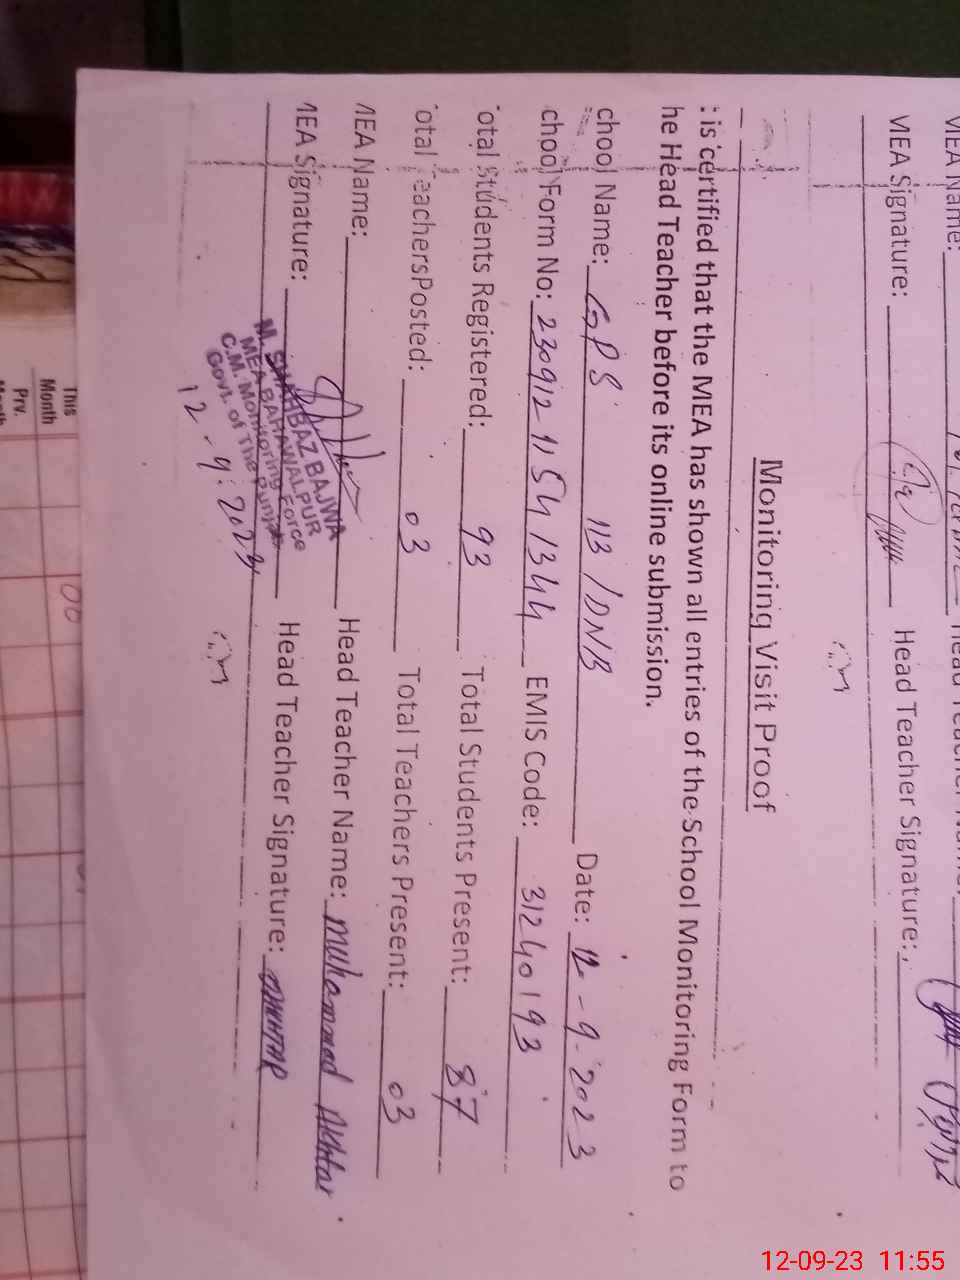 MEA Name:
MEA Signature: Head Teacher Signature:
Monitoring Visit Proof
is certified that the MEA has shown all entries of the School Monitoring Form to
he Head Teacher before its online submission.
chool Name: GPS 113/DNB Date: 12-9-2023
chool Form No: 230912115441344 EMIS Code: 31240193
otal Students Registered: 93 Total Students Present: 87
otal TeachersPosted: 03 Total Teachers Present: 03
MEA Name: Head Teacher Name: Muhammad Akhtar
MEA Signature: Head Teacher Signature:
M. SHAHBAZ BAJWA
MEA BAHAWALPUR
C.M. Monitoring Force
Govt. of The Punjab
12-9-2023
This
Month
Prv.
Month
12-09-23 11:55